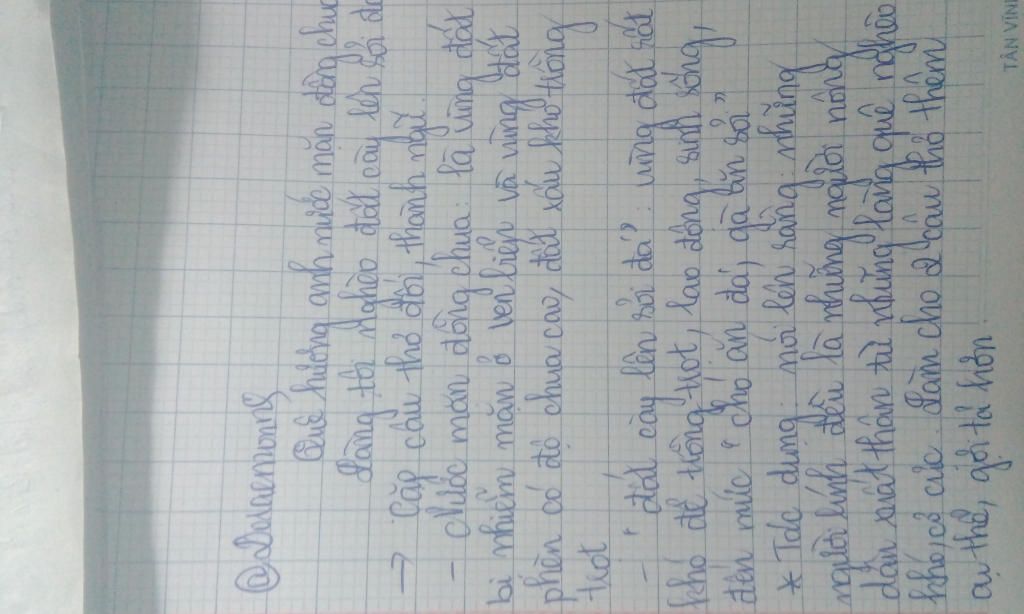 @Doraemong
Quê hương anh nước mặn đồng chua
Làng tôi nghèo đất cày lên sỏi đá
→ Cặp câu thơ đối, thành ngữ.
- Nước mặn đồng chua: là vùng đất
bị nhiễm mặn ở ven biển và vùng đất
phèn có độ chua cao, đất xấu khó trồng
trọt
- " đất cày lên sỏi đá": vùng đất sất
khó để trồng trọt, lao động, sinh sống,
đến mức " chó ăn đá, gà ăn sỏi "
* Tác dụng: nói lên rằng: những
người lính đều là những người nông
dân xuất thân từ những làng quê nghèo
khó, cơ cực. Làm cho 2 câu thơ thêm
cụ thể, gợi tả hơn.
TÂN VĨN